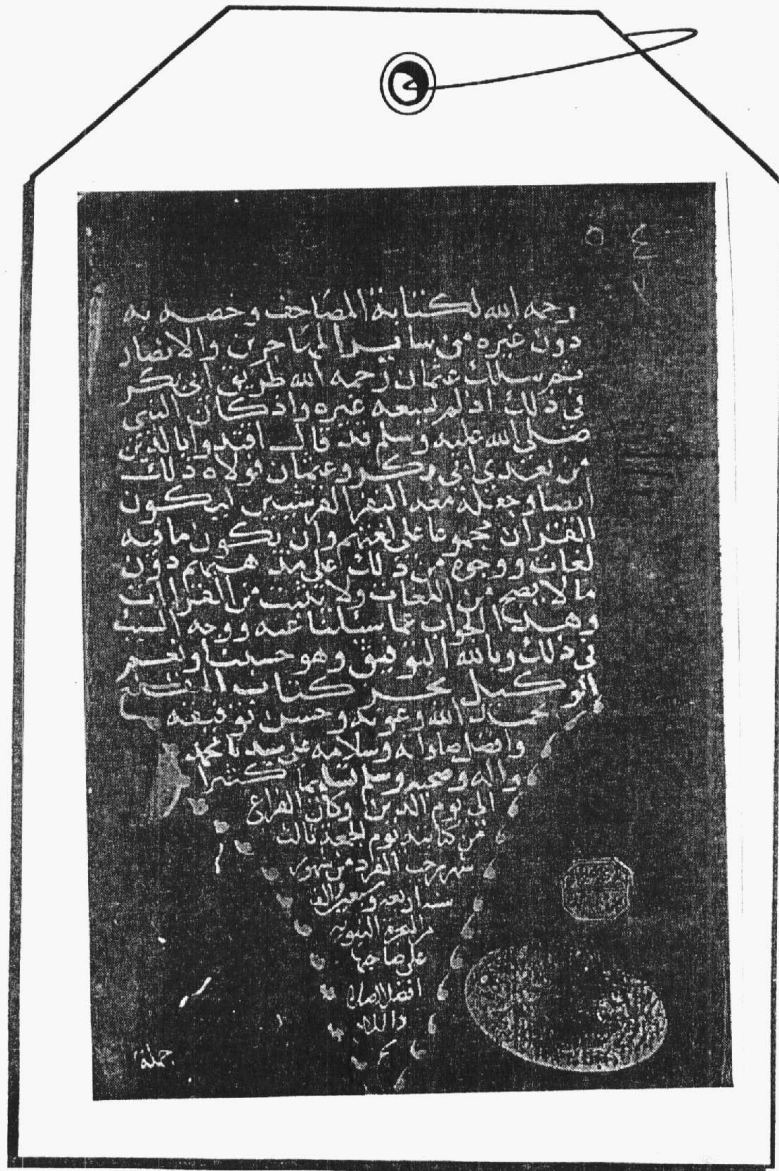 ٥٤
رحمه الله لكتابة المصاحف وخصه به
دون غيره من ساير المهاجرين والانصار
ثم سلك عثمان رحمه الله طريق ابي بكر
في ذلك اذ لم يسعه غيره واذ كان النبي
صلى الله عليه وسلم قد قال اقتدوا بالذين
من بعدي ابي بكر وعثمان فولاه ذلك
ايضا وجعله معه النفر القرشيين ليكون
القران مجموعا على لغتهم وان يكون ما فيه
لغات ووجوه من ذلك على مذهبهم دون
ما لا يصح من اللغات ولا يثبت من القراات
وهذا الجواب عما سئلنا عنه ووجه السبب
في ذلك وبالله التوفيق وهو حسبنا ونعم
الوكيل نجز كتاب المقنع
بحمد الله وعونه وحسن توفيقه
وافضل صلواته وسلامه على سيدنا محمد
واله وصحبه وسلم تسليما كثيرا
الى يوم الدين وكان الفراغ
من كتابته يوم الجمعة ثالث
شهر رجب الفرد من شهور
سنة اربعة والف
من الهجرة النبوية
على صاحبها
افضل الصلاة
والسلام
جملة